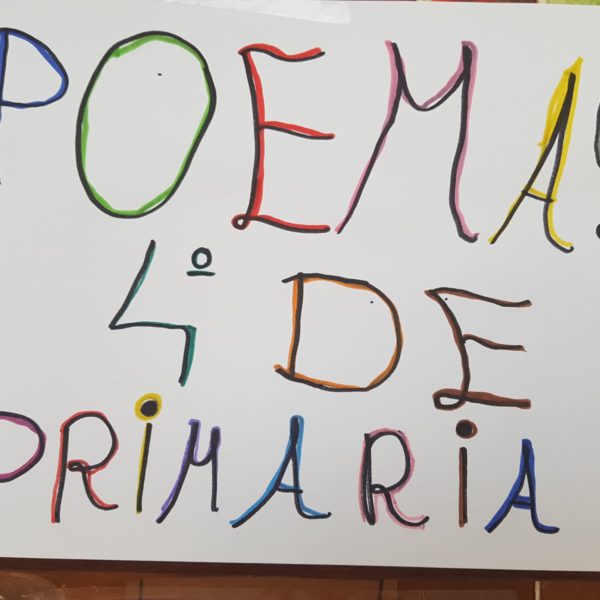 POEMAS
4º DE
PRIMARIA